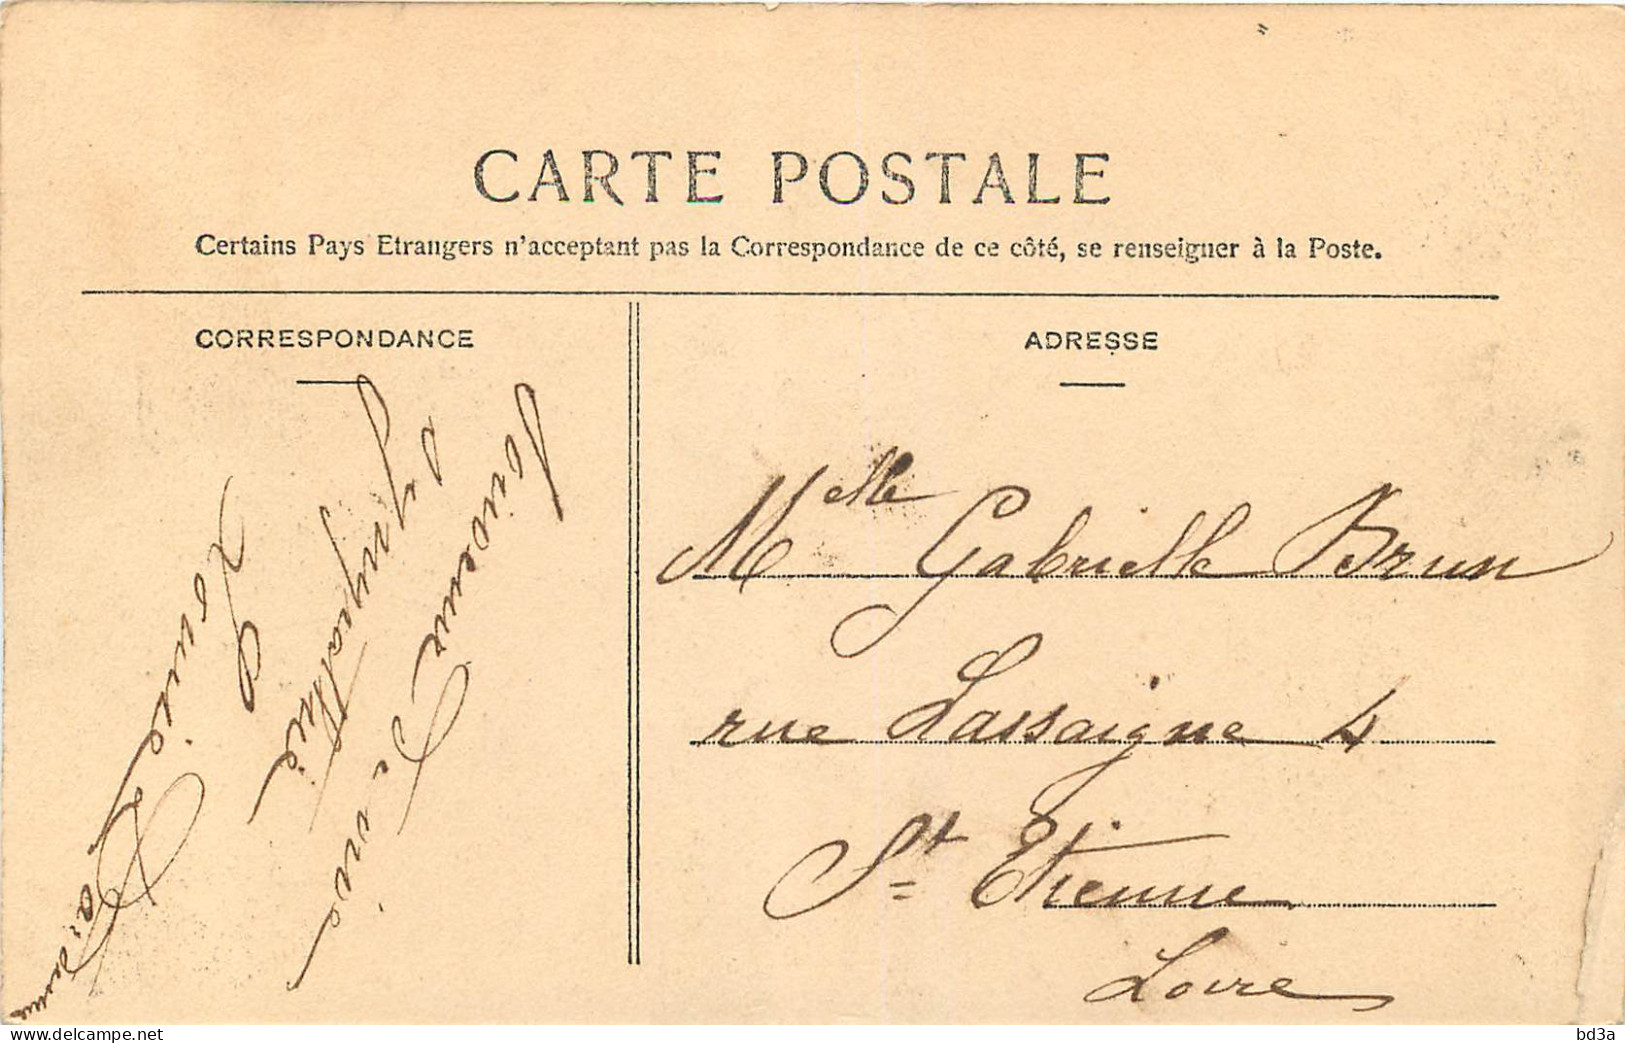 CARTE POSTALE
Certains Pays Etrangers n'acceptant pas la Correspondance de ce côté, se renseigner à la Poste.
CORRESPONDANCE
Souvenir
sympathie
Louise
ADRESSE
Melle Gabrielle Brun
rue Lassaigne 4
St Etienne
Loire
www.delcampe.net
bd3a